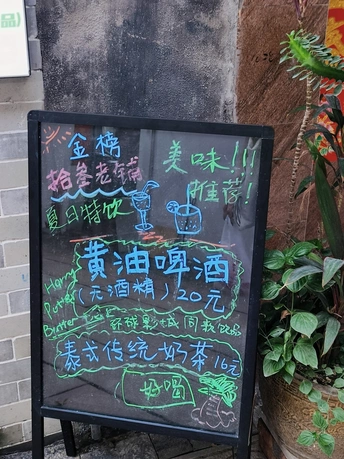 品)
金榜
拾叁老铺
夏日特饮
美味!!!
推荐!
Harry
Potter
Butter
黄油啤酒
(无酒精) 20元
环球影城同款饮品
泰式传统奶茶 16元
好喝